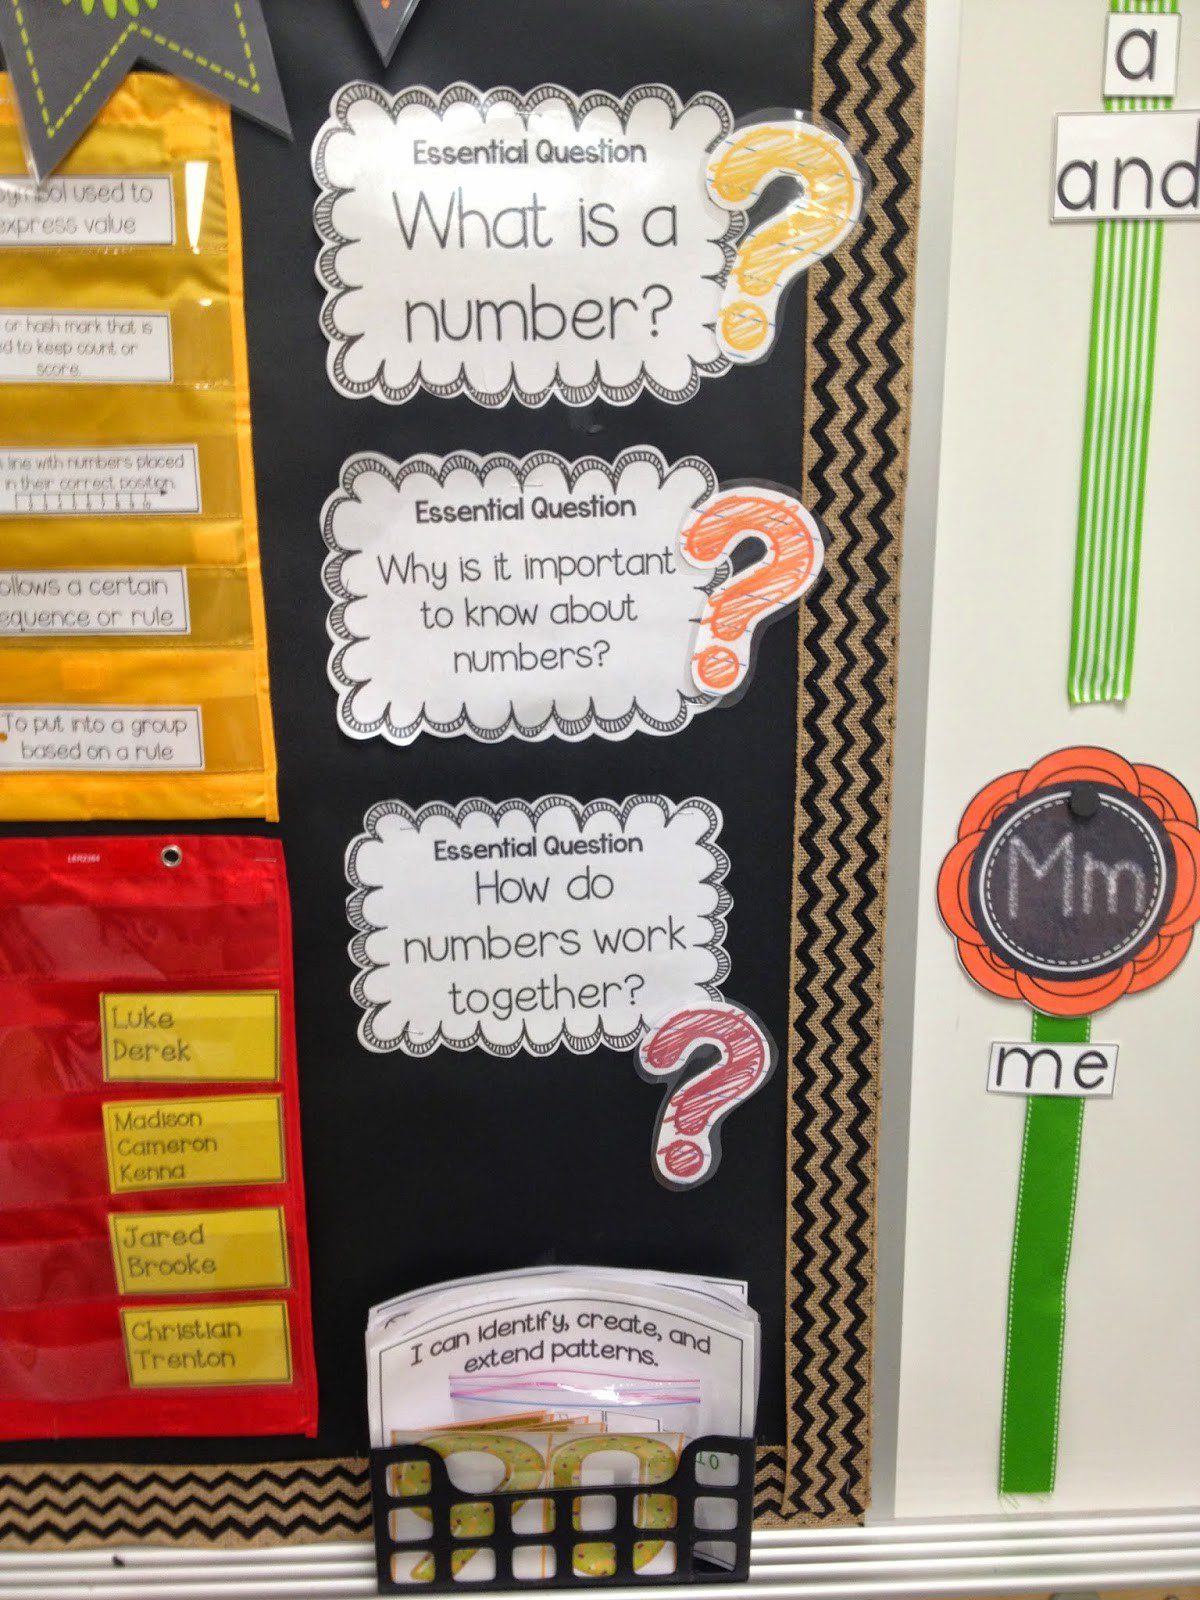 symbol used to
express value
or hash mark that is
ed to keep count or
score.
line with numbers placed
in their correct position.
follows a certain
sequence or rule
To put into a group
based on a rule
LER2384
Luke
Derek
Madison
Cameron
Kenna
Jared
Brooke
Christian
Trenton
Essential Question
What is a
number?
Essential Question
Why is it important
to know about
numbers?
Essential Question
How do
numbers work
together?
I can identify, create, and
extend patterns.
10
a
and
Mm
me